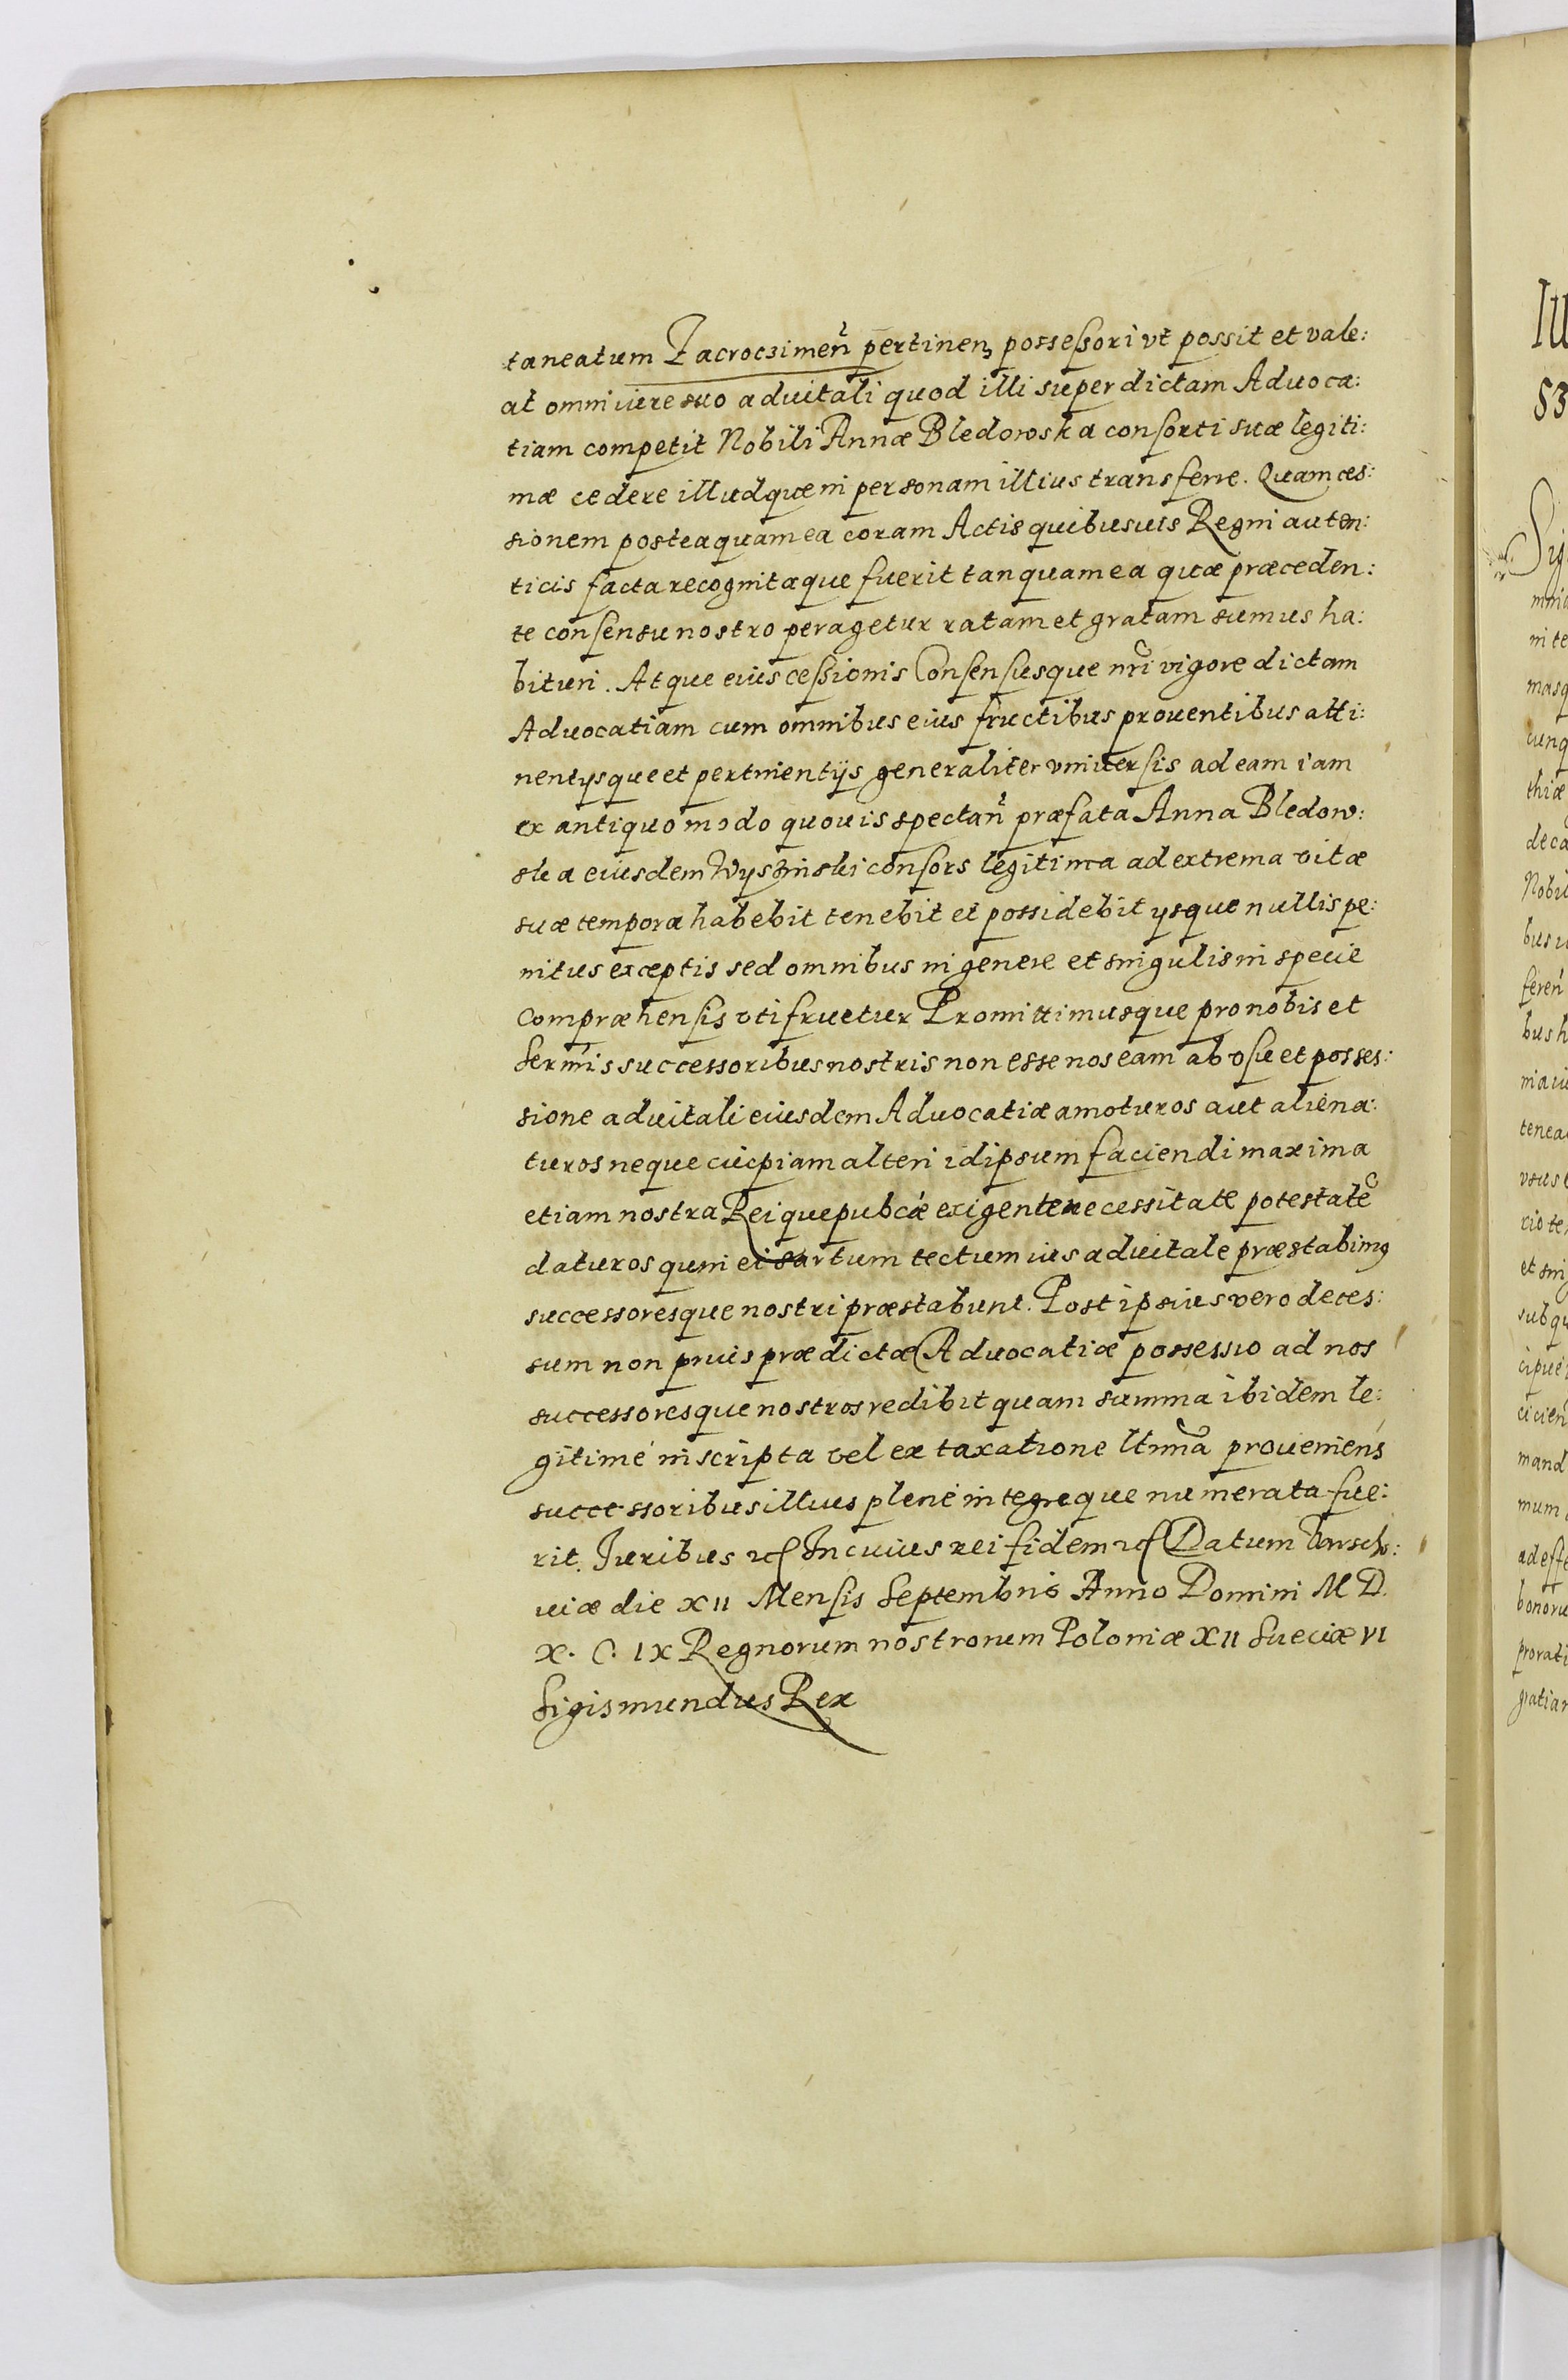 taneatum Zacroczimeñ pertineñ possessori vt possit et vale:
at omni iure suo aduitali quod illi super dictam Aduoca:
tiam competit Nobili Annæ Bledowska consorti suæ legiti:
mæ cedere illudque in personam illius transferre. Quam ces:
sionem posteaquam ea coram Actis quibusuis Regni auten:
ticis facta recognitaque fuerit tanquam ea quæ præceden:
te consensu nostro peragetur ratam et gratam sumus ha:
bituri. Atque eius cessionis Consensusque nri vigore dictam
Aduocatiam cum omnibus eius fructibus prouentibus atti:
nentysque et pertinentijs generaliter vniuersis ad eam iam
ex antiquo modo quouis spectañ præfata Anna Bledow:
ska eiusdem Wyszinski consors legitima ad extrema vitæ
suæ tempora habebit tenebit et possidebit ysque nullis pe:
nitus exceptis sed omnibus in genere et singulis in specie
Compræhensis vti fruetur Promittimusque pro nobis et
Sermis successoribus nostris non esse nos eam ab vsu et posses:
sione aduitali eiusdem Aduocatiæ amoturos aut aliena:
turos neque cuipiam alteri idipsum faciendi maxima
etiam nostra Reiquepubcæ exigente necessitate potestate
daturos quin ei sartum tectum ius aduitale præstabimus
successoresque nostri præstabunt. Post ipsius vero deces:
sum non prius prædictæ Aduocatiæ possessio ad nos
successoresque nostros redibit quam summa ibidem le:
gitimé inscripta vel ex taxatione ltima proueniens
successoribus illius plené integreque numerata fue:
rit. Iuribus etc In cuius rei fidem etc Datum Varscho:
uiæ die XII Mensis Septembris Anno Domini M D.
X. C. IX Regnorum nostrorum Poloniæ XII Sueciæ VI
Sigismundus Rex